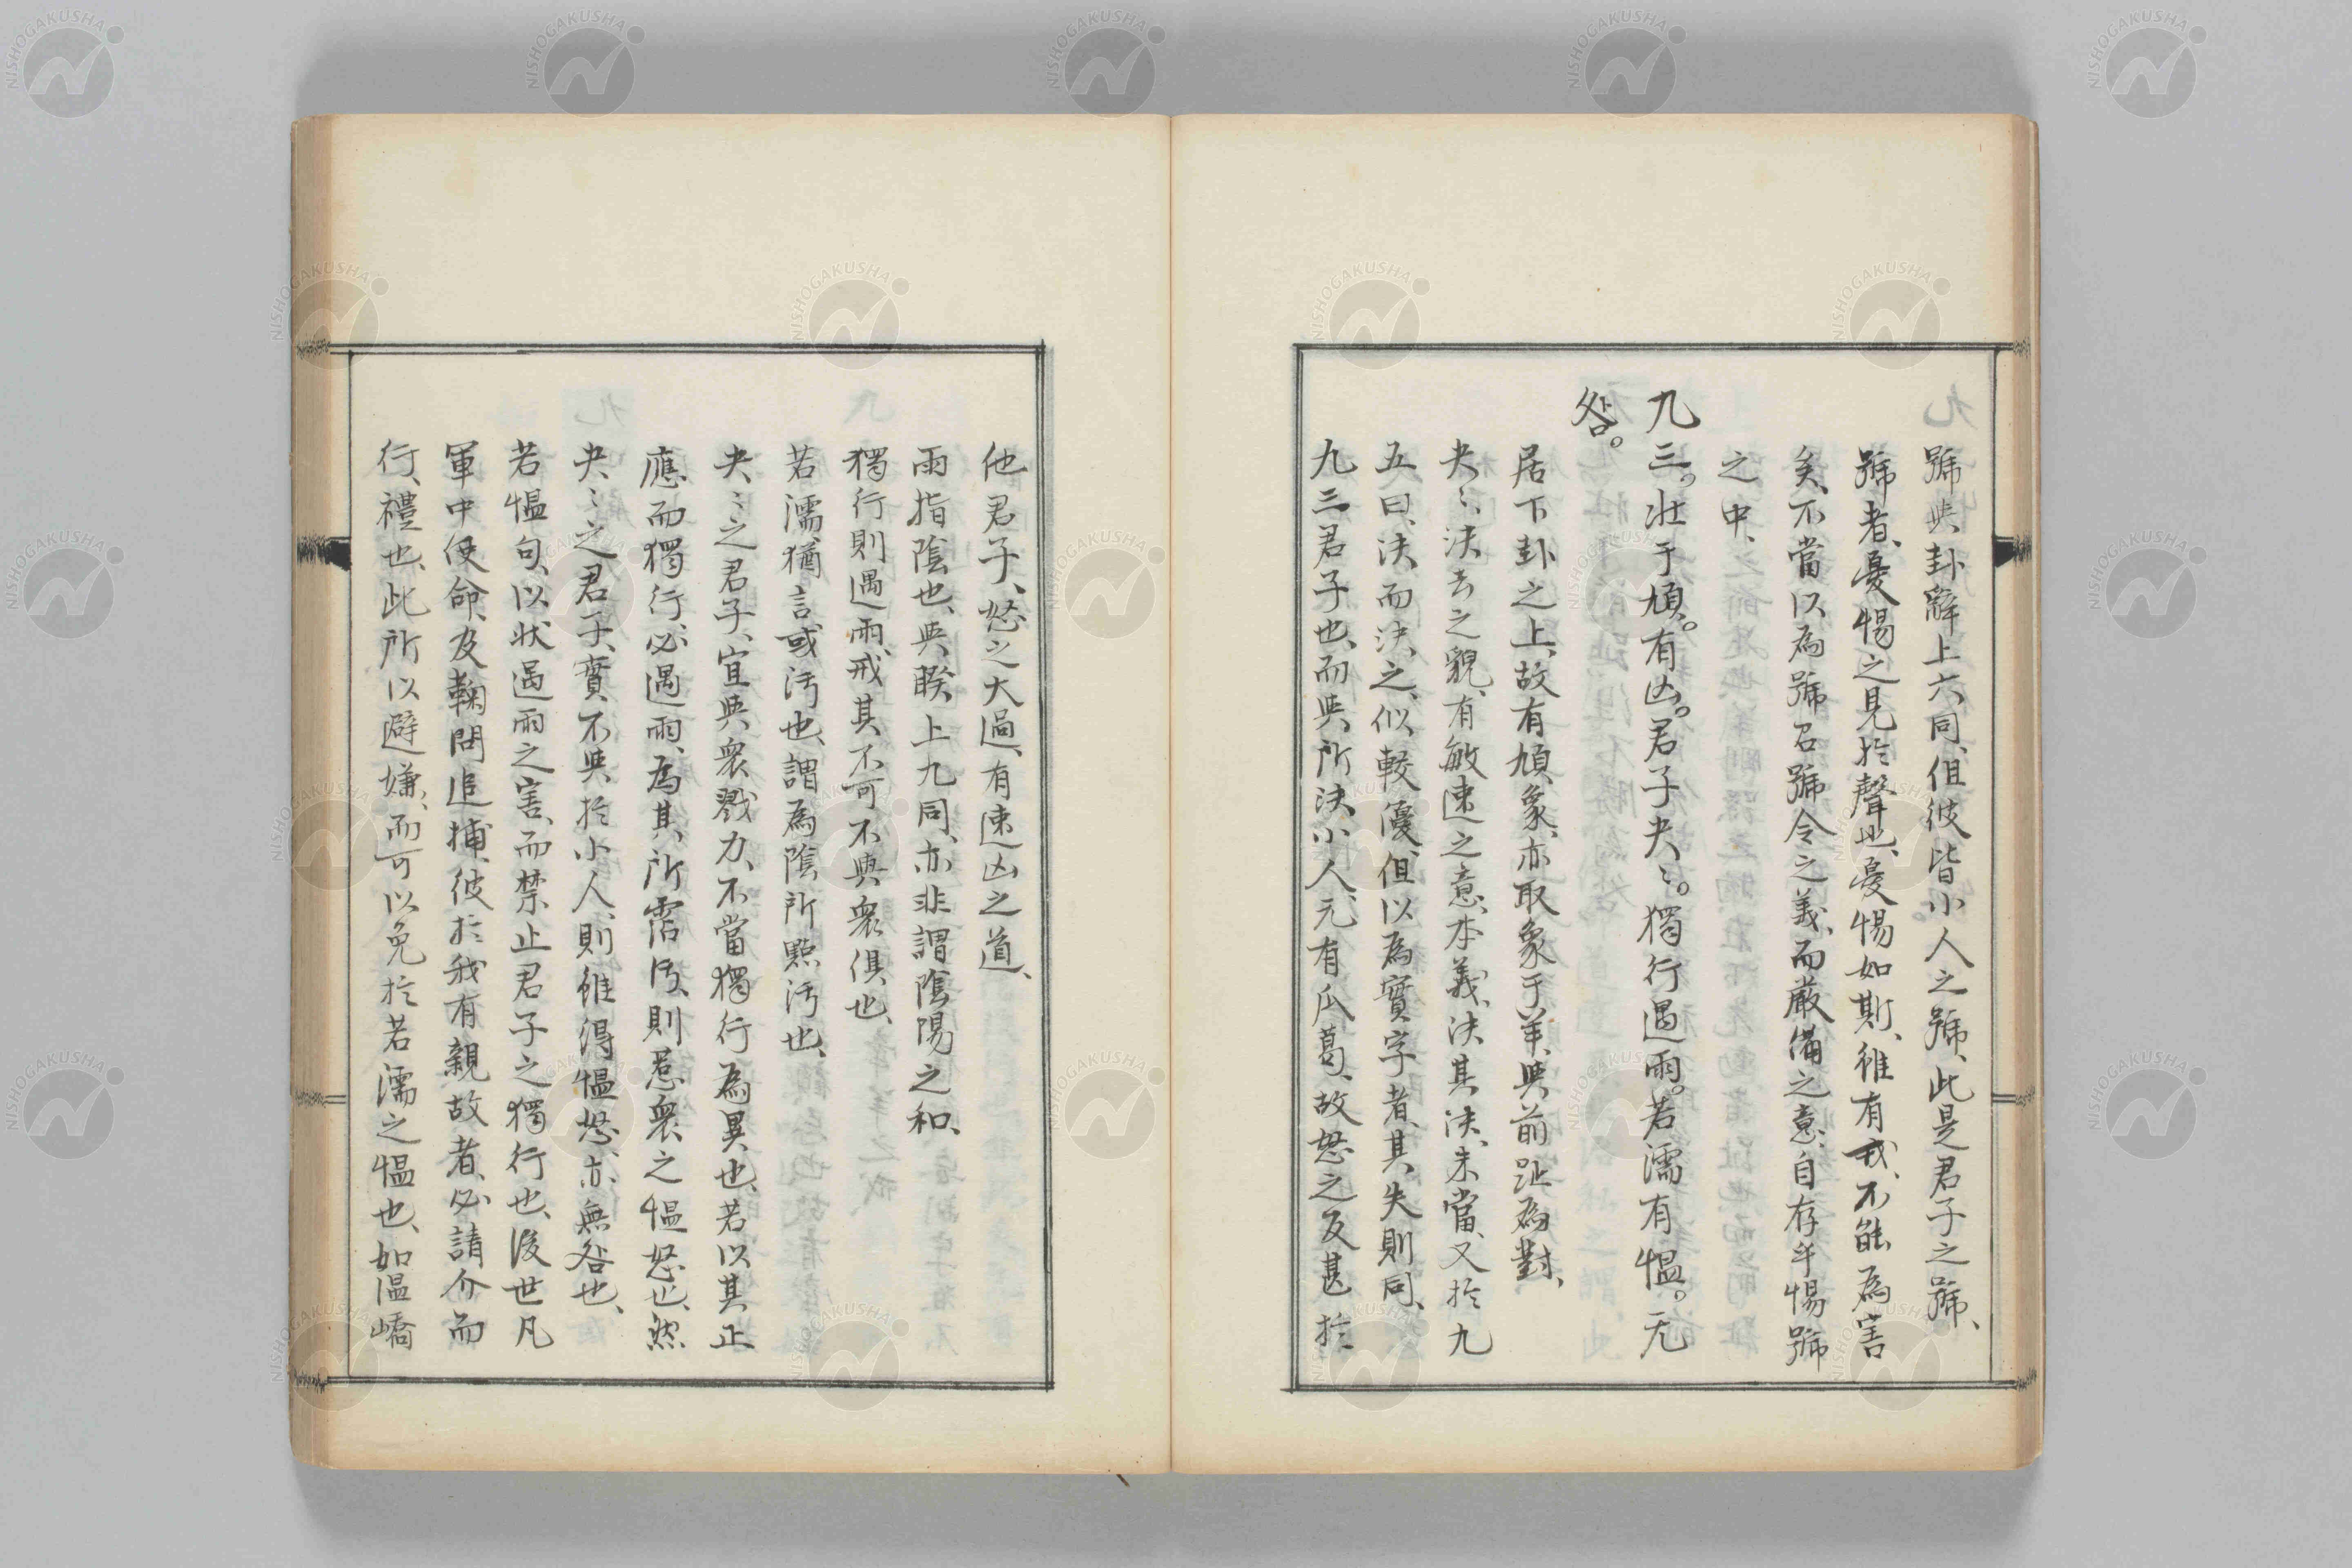 號與卦辭上六同、但彼皆小人之號、此是君子之號、
號者、憂惕之見於聲也、憂惕如斯、雖有戎、不能為害
矣、不當以為號召號令之義、而嚴備之意、自存乎惕號
之中、
九三。壮于頄。有凶。君子夬〻。獨行遇雨。若濡有慍。无
咎。
居下卦之上、故有頄象、亦取象于羊、與前趾為對、
夬〻、決去之貌、有敏速之意、本義、決其決、未當、又於九
五曰、決而決之、似較優、但以為實字者、其失則同、
九三君子也、而與所決小人、元有瓜葛、故怒之反甚於
他君子、怒之大過、有速凶之道、
雨指陰也、與睽上九同、亦非謂陰陽之和、
獨行則遇雨、戒其不可不與衆俱也、
若濡猶言或汚也、謂為陰所點汚也、
夬〻之君子、宜與衆戮力、不當獨行為異也、若以其正
應而獨行、必遇雨、為其所霑汚、則惹衆之慍怒也、然
夬〻之君子、實不與於小人、則雖得慍怒、亦無咎也、
若慍句、以状遇雨之害、而禁止君子之獨行也、後世凡
軍中使命、及鞠問追捕、彼於我有親故者、必請介而
行、禮也、此所以避嫌、而可以免於若濡之慍也、如温嶠